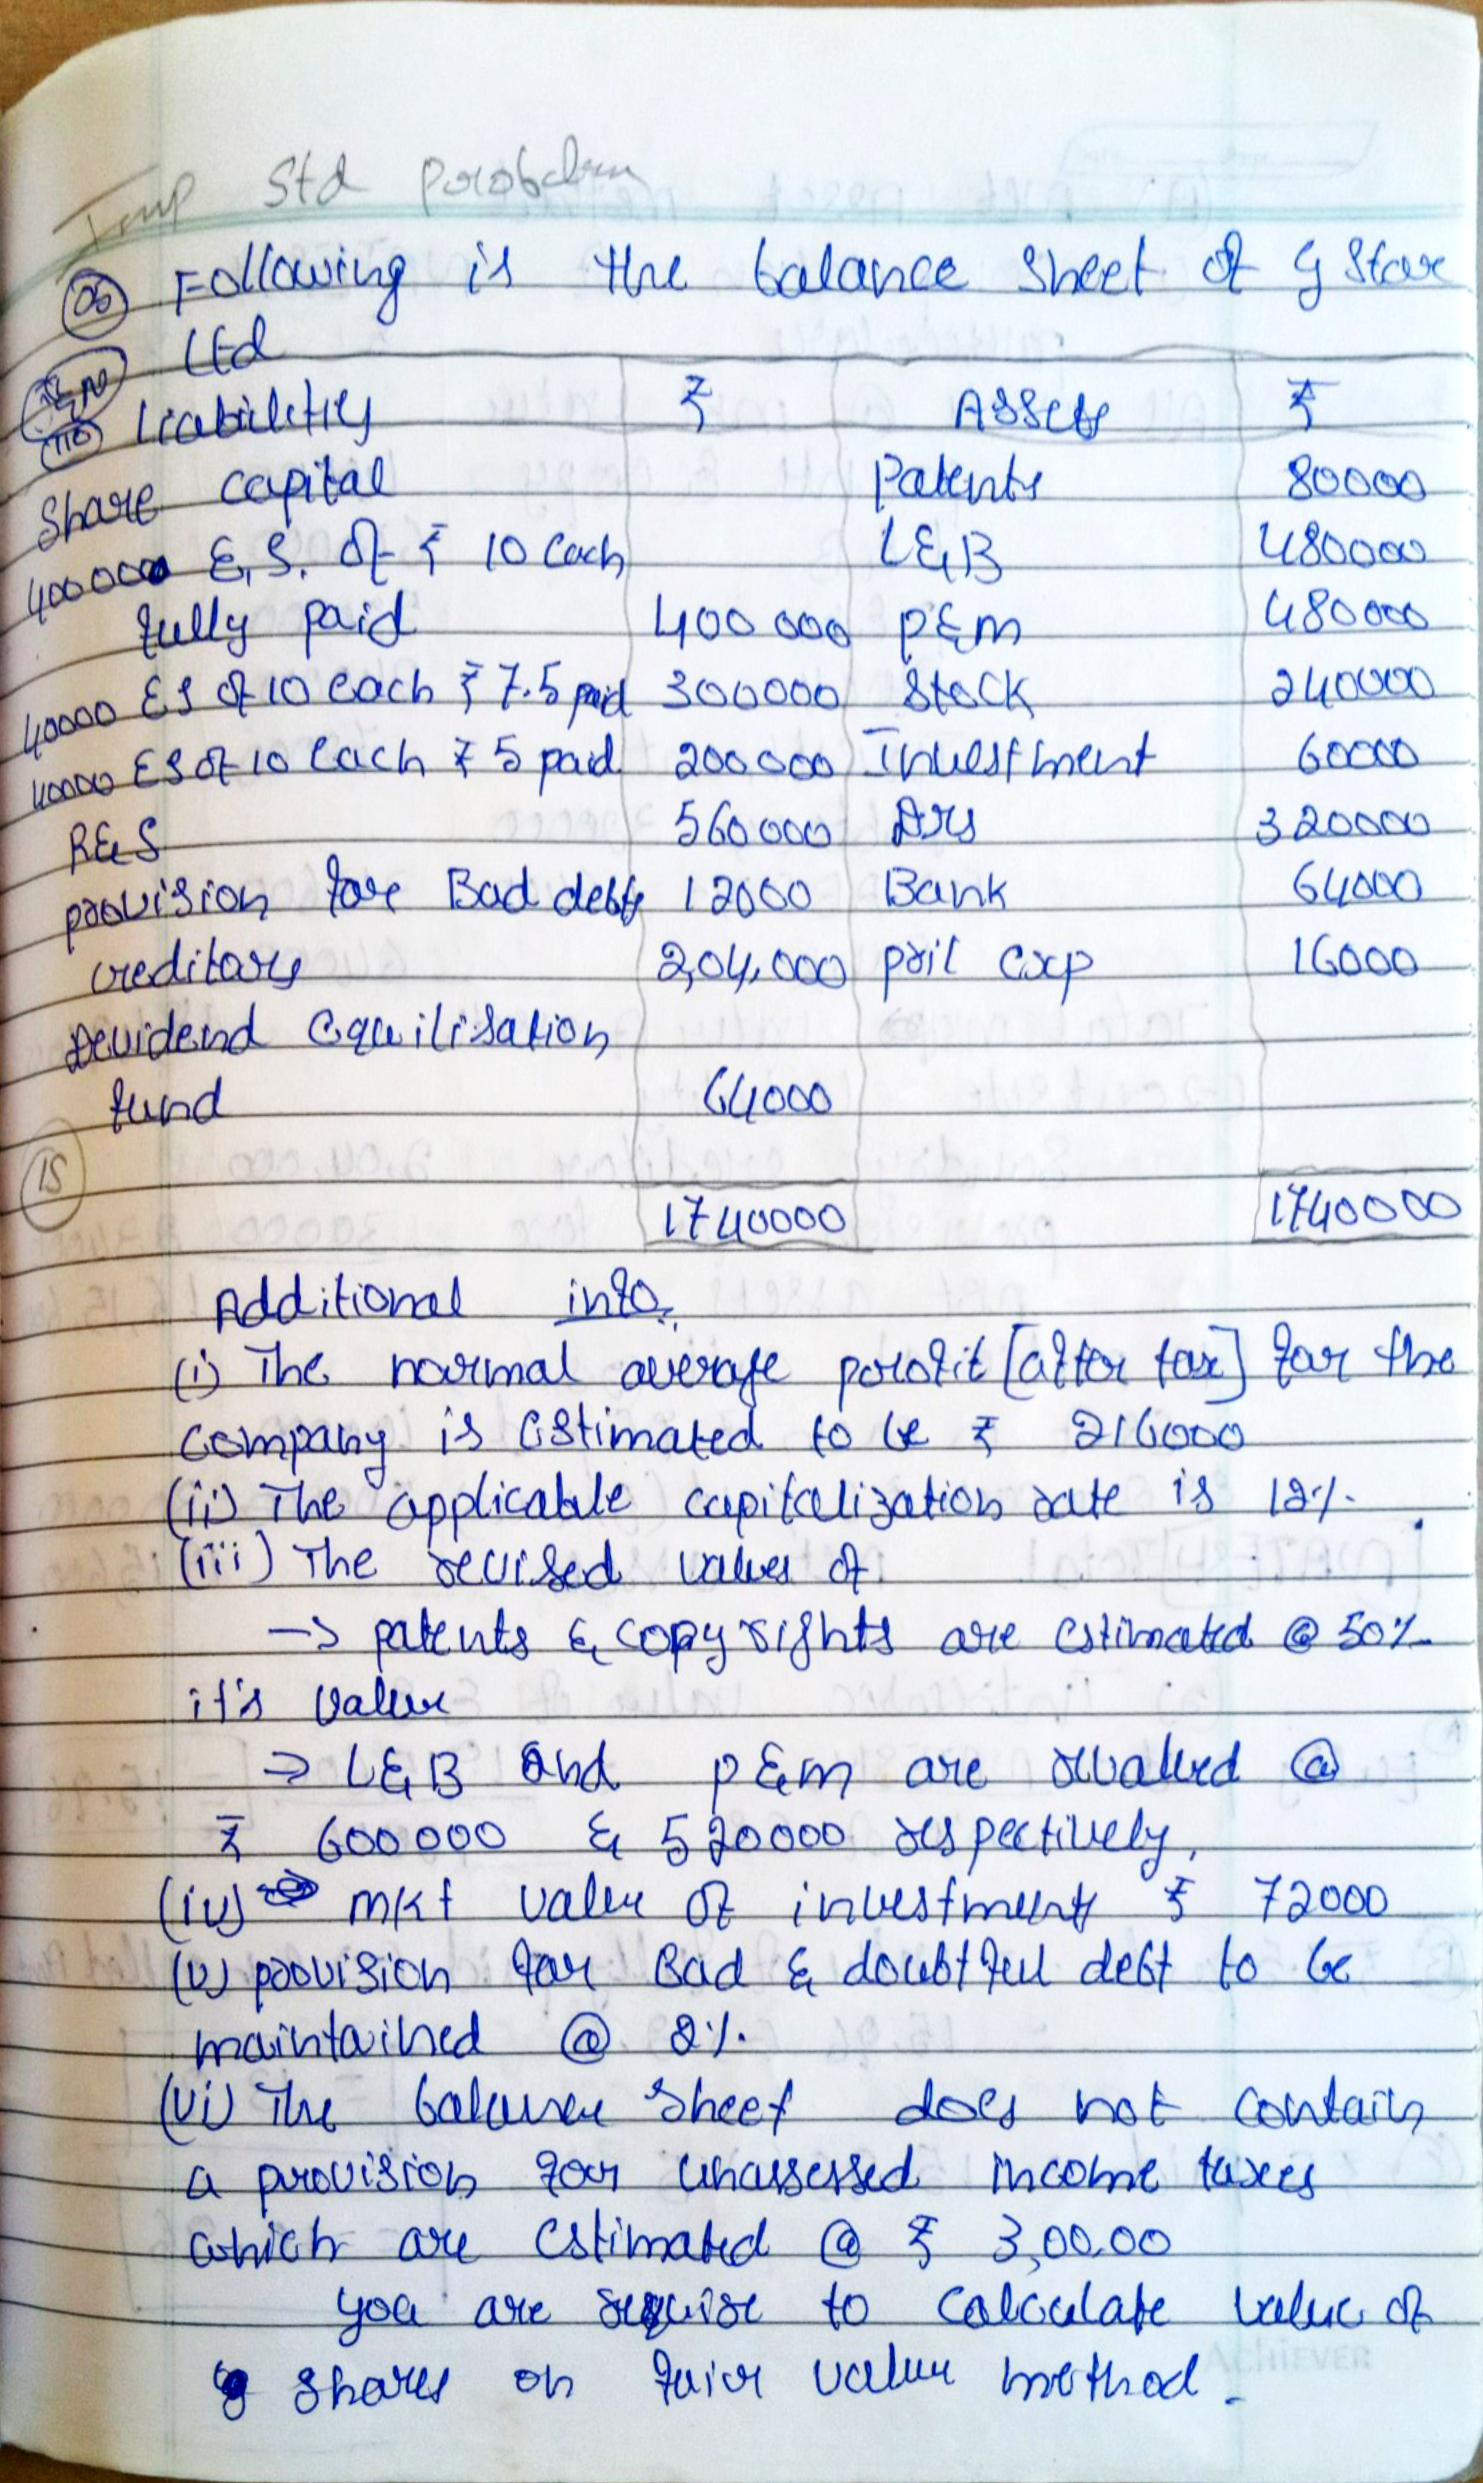 Imp Std Problem
06 Following is the balance sheet of G Star
Ltd
Liabilities ₹ Assets ₹
Share capital Patents 80000
40000 E.S. of ₹ 10 each L&B 480000
fully paid 400000 P&M 480000
40000 ES of 10 each ₹ 7.5 paid 300000 Stock 240000
40000 ES of 10 each ₹ 5 paid 200000 Investment 60000
R&S 560000 Drs 320000
provision for Bad debts 12000 Bank 64000
creditors 2,04,000 pril exp 16000
Devidend equilisation
fund 64000
15
1740000 1740000
Additional info.
(i) The normal average profit [after tax] for the
company is estimated to be ₹ 216000
(ii) The applicable capitalization rate is 12%.
(iii) The revised values of
→ patents & copy rights are estimated @ 50%
it's value
⇒ L&B and P&M are revalued @
₹ 600000 & 520000 respectively,
(iv) mkt value of investment ₹ 72000
(v) provision for Bad & doubtful debt to be
maintained @ 2%.
(vi) The balance sheet does not contain
a provision for unassessed income taxes
which are estimated @ ₹ 3,00,00
you are require to calculate value of
shares on fair value method.
ACHIEVER